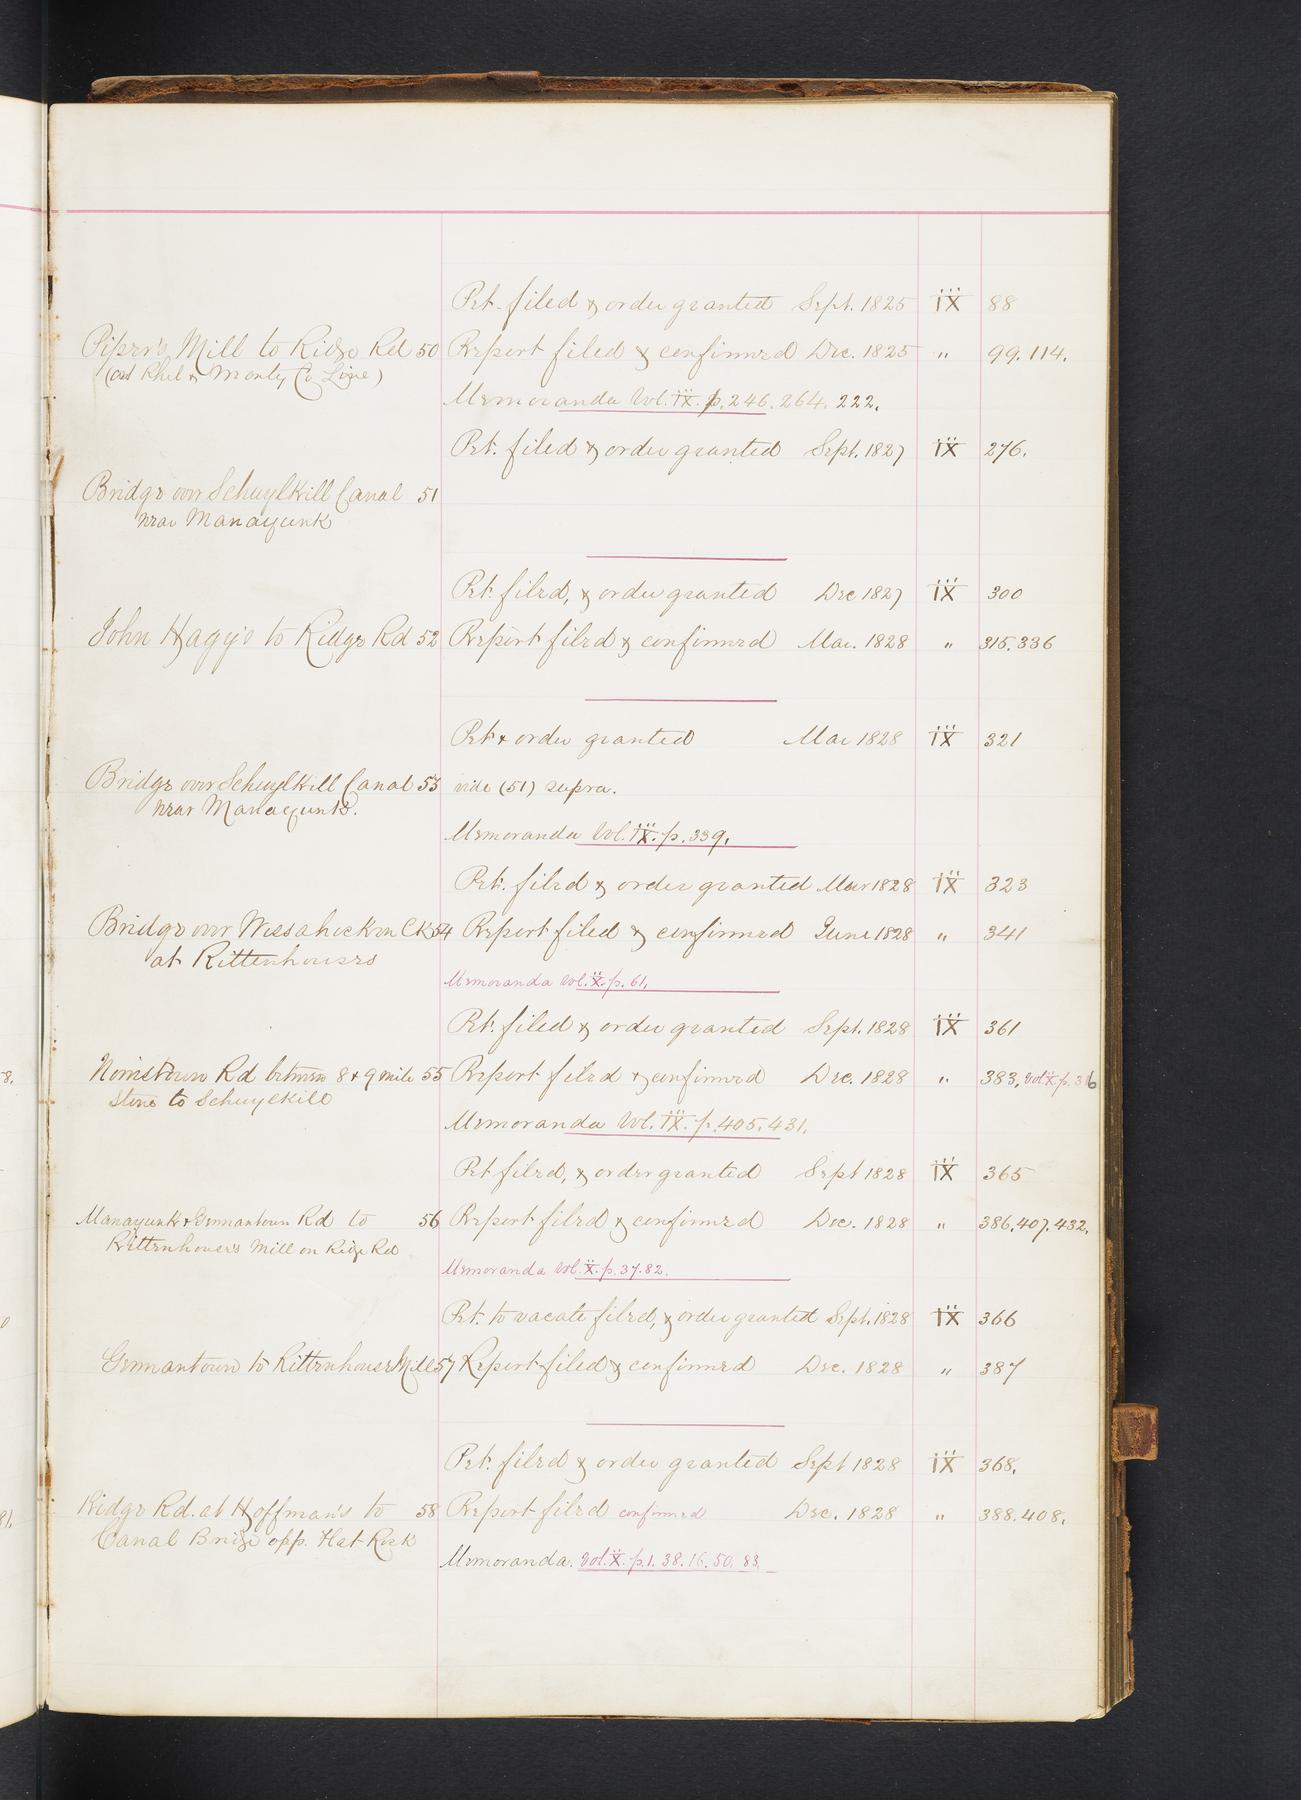 Pet. filed & order granted Sept. 1825 IX 88
Piper's Mill to Ridge Rd 50 Report filed & confirmed Dec. 1825 " 99. 114.
(at Phil & Montg Co Line)
Memoranda Vol. IX. p. 246. 264. 222.
Pet. filed & order granted Sept. 1827 IX 276.
Bridge over Schuylkill Canal 51
near Manayunk
Pet. filed, & order granted Dec 1827 IX 300
John Hagy's to Ridge Rd 52 Report filed & confirmed Mar. 1828 " 315. 336
Pet & order granted Mar 1828 IX 321
Bridge over Schuylkill Canal 53 vide (51) supra.
near Manayunk.
Memoranda Vol. IX. p. 339.
Pet. filed & order granted Mar 1828 IX 323
Bridge over Wissahickon Ck 54 Report filed & confirmed June 1828 " 341
at Rittenhouses
Memoranda Vol. X. p. 61.
Pet. filed & order granted Sept. 1828 IX 361
Norristown Rd between 8 & 9 mile 55 Report filed & confirmed Dec. 1828 " 383, Vol X p. 36
stone to Schuylkill
Memoranda Vol. IX. p. 405. 431.
Pet filed, & order granted Sept 1828 IX 365
Manayunk & Germantown Rd to 56 Report filed & confirmed Dec. 1828 " 386. 407. 432.
Rittenhouse's Mill on Ridge Rd
Memoranda Vol. X. p. 37. 82.
Pet. to vacate filed, & order granted Sept. 1828 IX 366
Germantown to Rittenhouse Mill 57 Report filed & confirmed Dec. 1828 " 387
Pet. filed & order granted Sept 1828 IX 368.
Ridge Rd. at Hoffman's to 58 Report filed confirmed Dec. 1828 " 388. 408.
Canal Bridge opp. Flat Rock
Memoranda. Vol. X. p. 1. 38. 16. 50. 83.